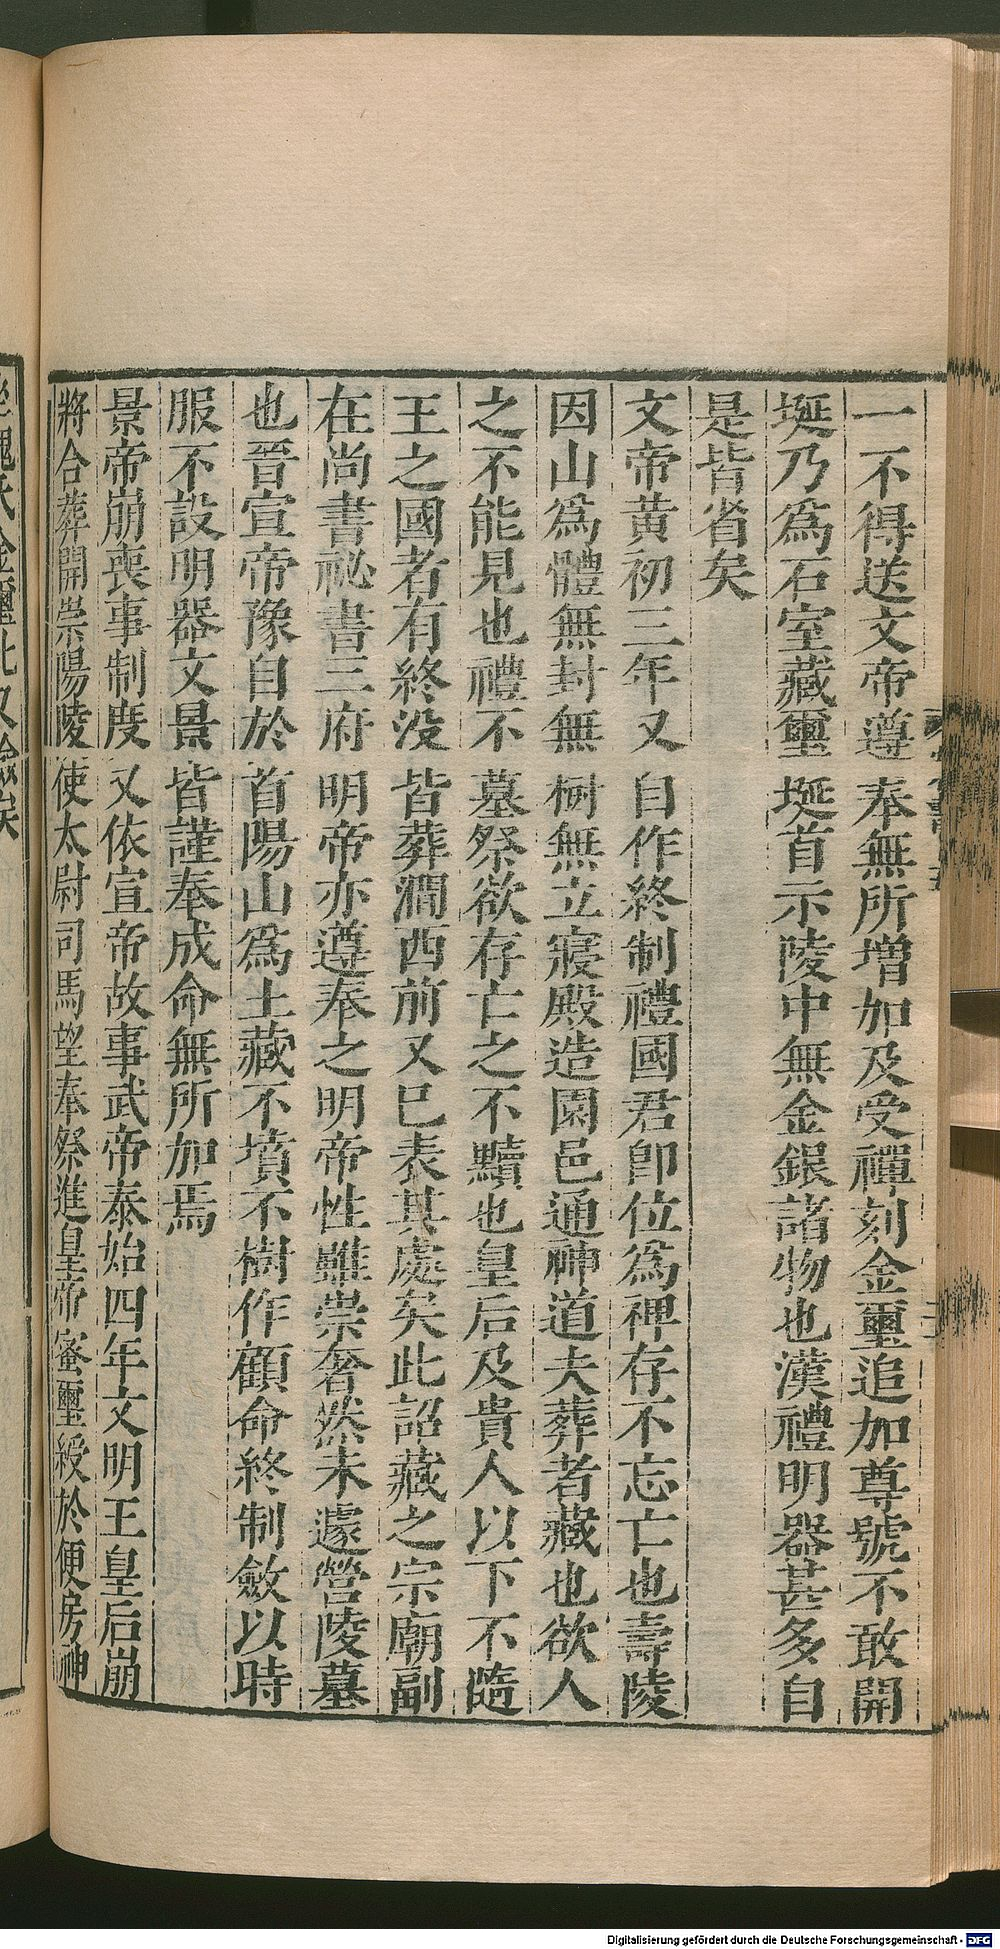 一不得送文帝遵奉無所增加及受禪刻金璽追加尊號不敢開
埏乃爲石室藏璽埏首示陵中無金銀諸物也漢禮明器甚多自
是皆省矣
文帝黄初三年又自作終制禮國君卽位爲椑存不忘亡也壽陵
因山爲體無封無樹無立寢殿造園邑通神道夫葬者藏也欲人
之不能見也禮不墓祭欲存亡之不黷也皇后及貴人以下不隨
王之國者有終没皆葬澗西前又已表其處矣此詔藏之宗廟副
在尚書祕書三府明帝亦遵奉之明帝性雖崇奢然未遽營陵墓
也晉宣帝豫自於首陽山爲土藏不墳不樹作顧命終制斂以時
服不設明器文景皆謹奉成命無所加焉
景帝崩喪事制度又依宣帝故事武帝泰始四年文明王皇后崩
將合葬開崇陽陵使太尉司馬望奉祭進皇帝蜜璽綬於便房神
Digitalisierung gefördert durch die Deutsche Forschungsgemeinschaft - DFG